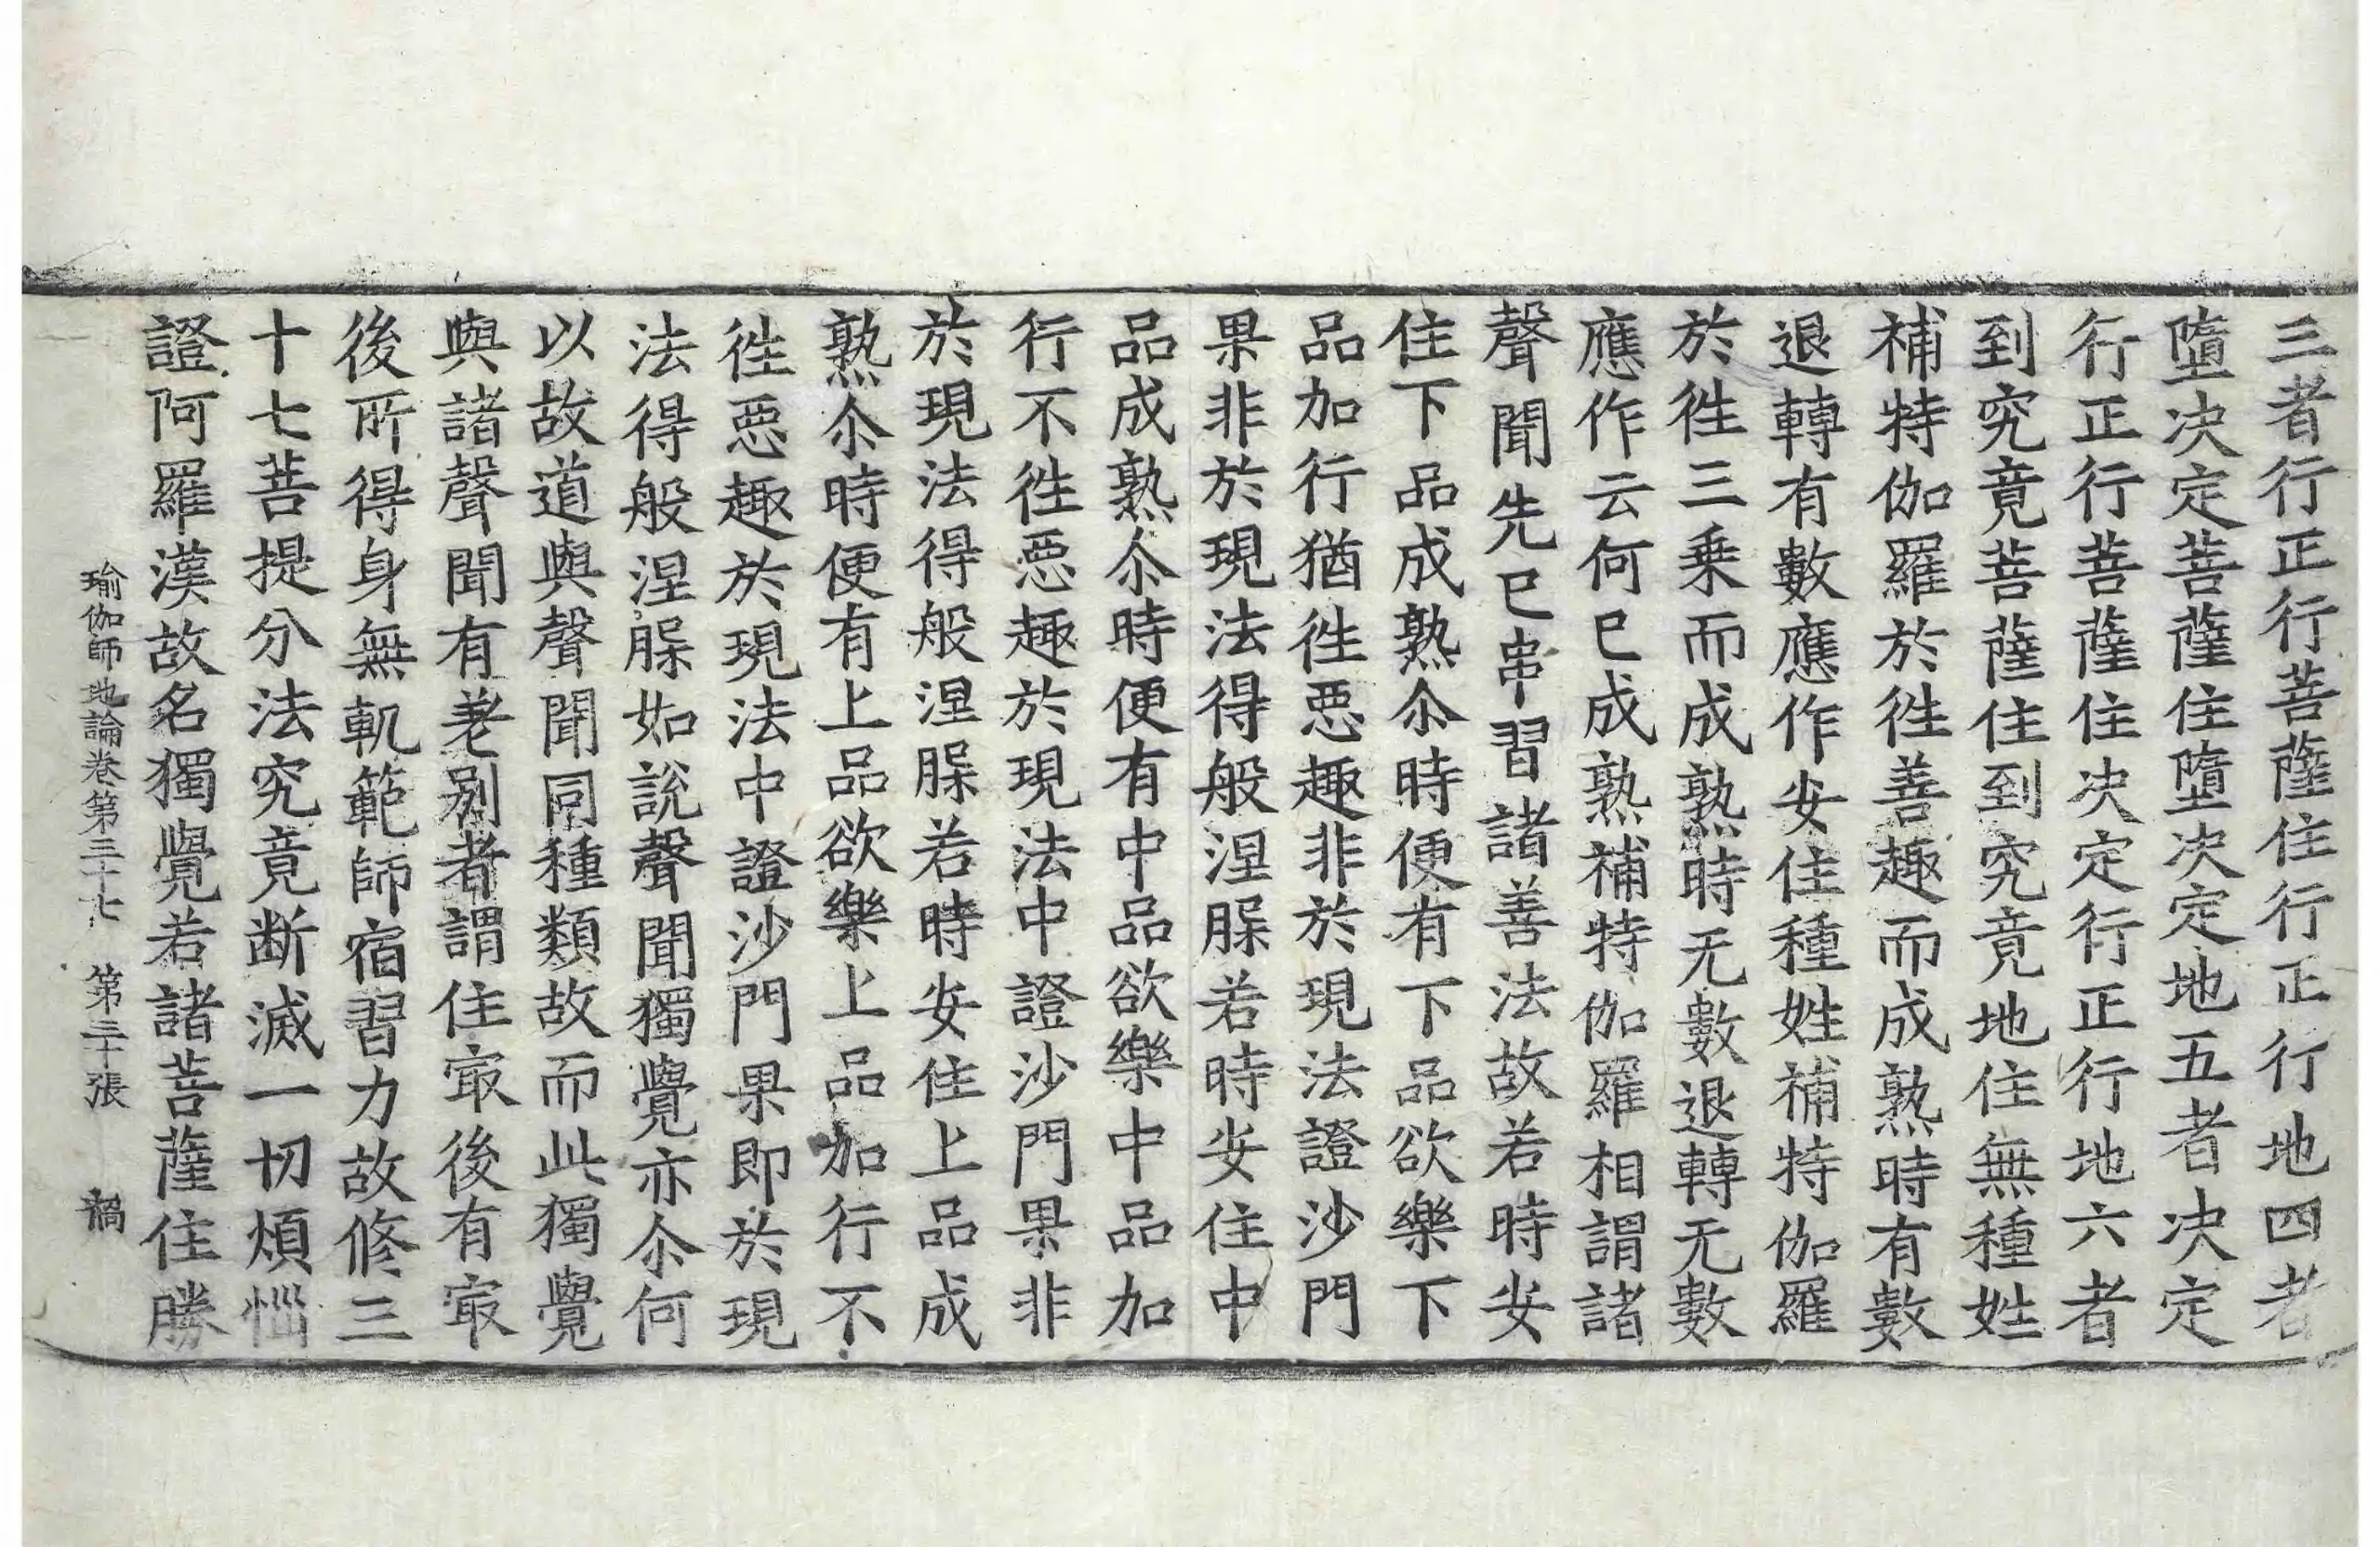 三者行正行菩薩住行正行地四者
墮决定菩薩住墮决定地五者决定
行正行菩薩住决定行正行地六者
到究竟菩薩住到究竟地住無種姓
補特伽羅於徃善趣而成熟時有數
退轉有數應作安住種姓補特伽羅
於徃三乗而成熟時无數退轉无數
應作云何已成熟補特伽羅相謂諸
聲聞先已串習諸善法故若時安
住下品成熟尒時便有下品欲樂下
品加行猶徃惡趣非於現法證沙門
果非於現法得般涅䏶若時安住中
品成熟尒時便有中品欲樂中品加
行不徃惡趣於現法中證沙門果非
於現法得般涅䏶若時安住上品成
熟尒時便有上品欲樂上品加行不
徃惡趣於現法中證沙門果即於現
法得般涅䏶如說聲聞獨覺亦尒何
以故道與聲聞同種類故而此獨覺
與諸聲聞有差別者謂住㝡後有㝡
後所得身無軌範師宿習力故修三
十七菩提分法究竟断滅一切煩惱
證阿羅漢故名獨覺若諸菩薩住勝
瑜伽師地論卷第三十七 第三十張 禍